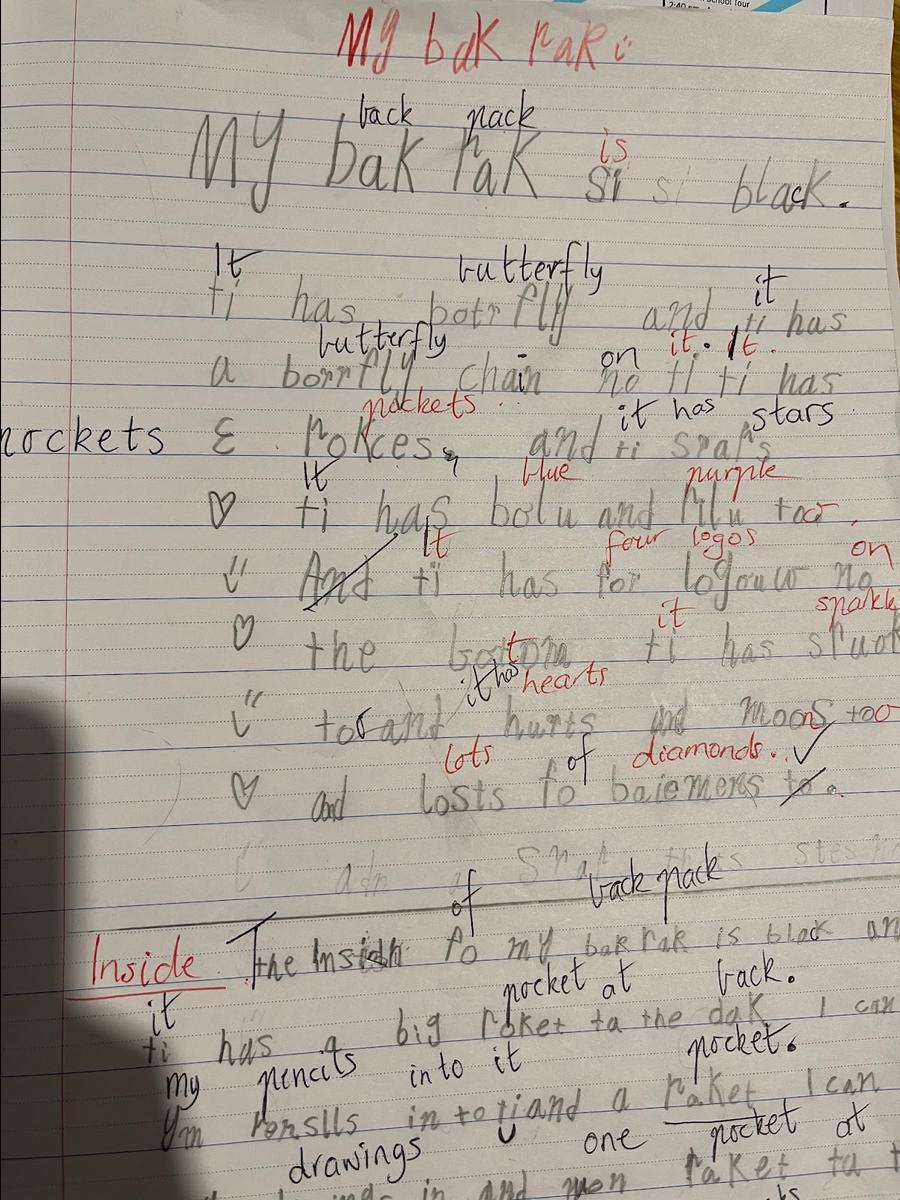 School Tour
My bak pak :
back pack
is
My bak pak si si black.
It butterfly it
ti has botrfly and ti has
butterfly on it. It.
a borrfly chain no ti ti has
pockets it has stars
pockets & pokces, and ti sraps
It blue purple
ti has bolu and pilu too.
It four logos on
And ti has for logouw no
it sparkl
the bottom ti has
it has hearts
too and hurts and moons too
lots of diamonds.
and losts fo baiemens to.
of back pack
Inside The Insidh fo my bak pak is black an
it pocket at back.
ti has a big poket ta the dak I can
my pencils into it pocket.
Ym pensils in to ti and a paket I can
drawings one pocket at
in and paket ta t